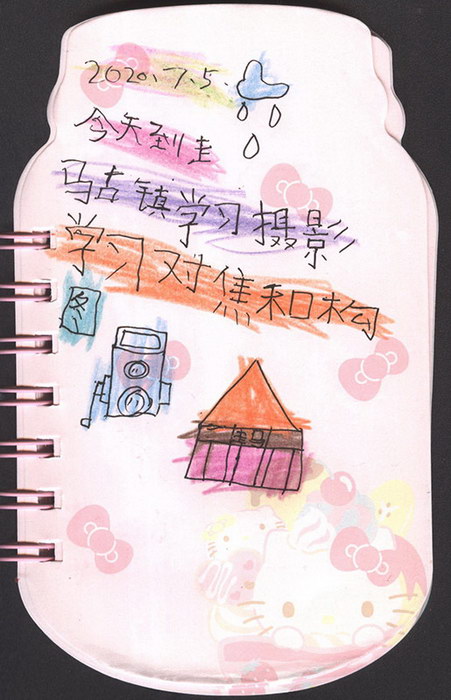 2020.7.5.
今天到走
马古镇学习摄影
学习对焦和构
图